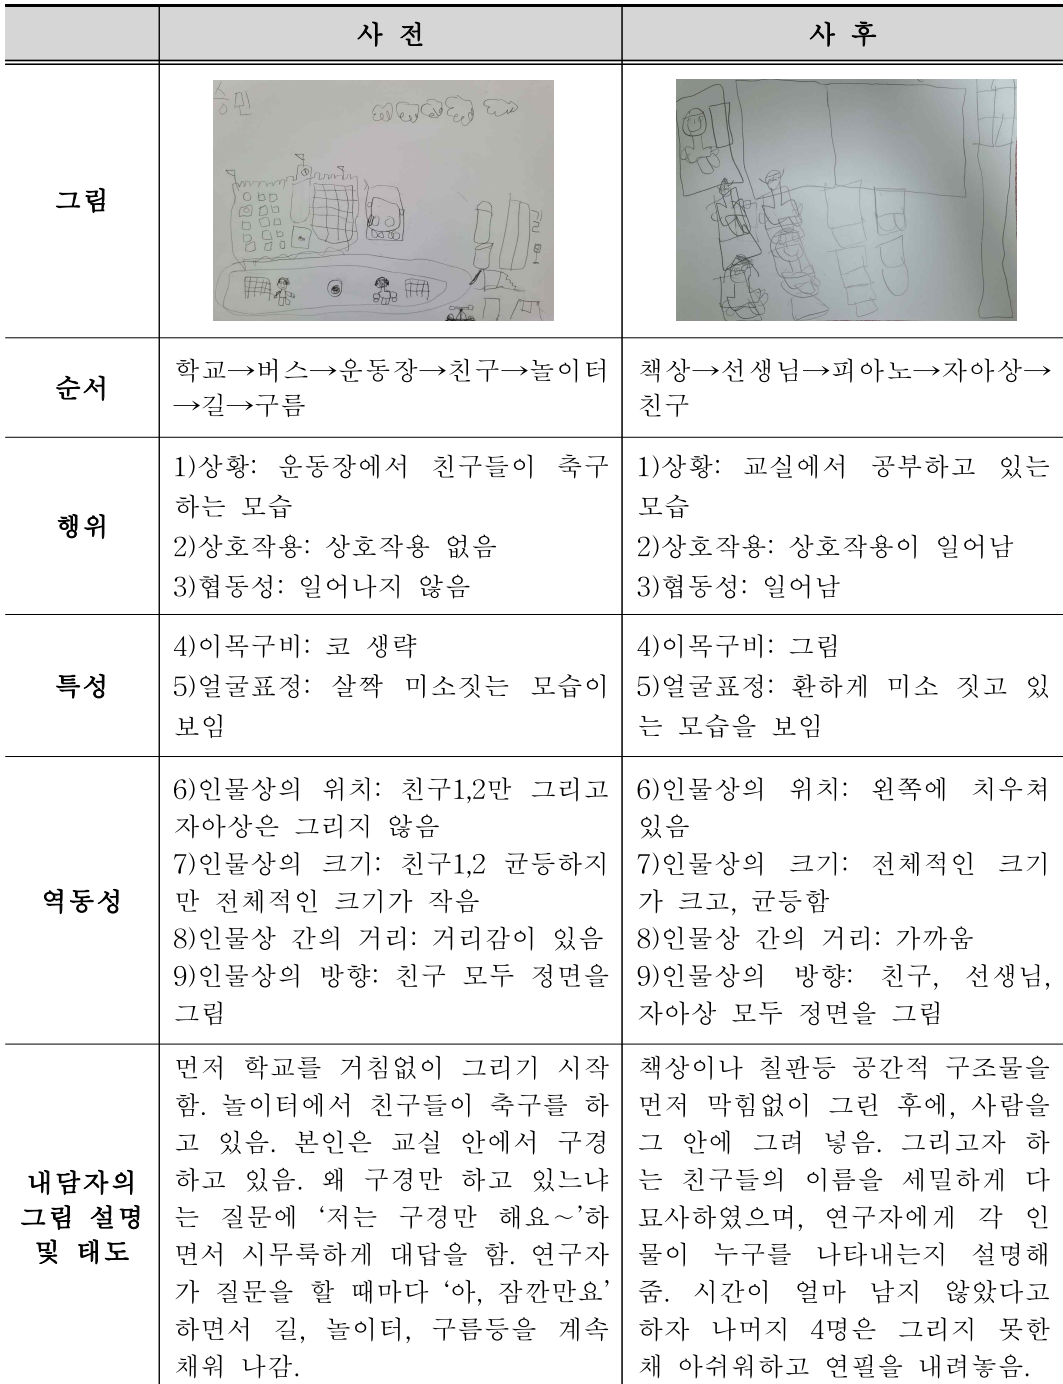 사 전
사 후
그림
승민
길
순서
학교→버스→운동장→친구→놀이터
→길→구름
책상→선생님→피아노→자아상→
친구
행위
1)상황: 운동장에서 친구들이 축구
하는 모습
2)상호작용: 상호작용 없음
3)협동성: 일어나지 않음
1)상황: 교실에서 공부하고 있는
모습
2)상호작용: 상호작용이 일어남
3)협동성: 일어남
특성
4)이목구비: 코 생략
5)얼굴표정: 살짝 미소짓는 모습이
보임
4)이목구비: 그림
5)얼굴표정: 환하게 미소 짓고 있
는 모습을 보임
역동성
6)인물상의 위치: 친구1,2만 그리고
자아상은 그리지 않음
7)인물상의 크기: 친구1,2 균등하지
만 전체적인 크기가 작음
8)인물상 간의 거리: 거리감이 있음
9)인물상의 방향: 친구 모두 정면을
그림
6)인물상의 위치: 왼쪽에 치우쳐
있음
7)인물상의 크기: 전체적인 크기
가 크고, 균등함
8)인물상 간의 거리: 가까움
9)인물상의 방향: 친구, 선생님,
자아상 모두 정면을 그림
내담자의
그림 설명
및 태도
먼저 학교를 거침없이 그리기 시작
함. 놀이터에서 친구들이 축구를 하
고 있음. 본인은 교실 안에서 구경
하고 있음. 왜 구경만 하고 있느냐
는 질문에 ‘저는 구경만 해요~’하
면서 시무룩하게 대답을 함. 연구자
가 질문을 할 때마다 ‘아, 잠깐만요’
하면서 길, 놀이터, 구름등을 계속
채워 나감.
책상이나 칠판등 공간적 구조물을
먼저 막힘없이 그린 후에, 사람을
그 안에 그려 넣음. 그리고자 하
는 친구들의 이름을 세밀하게 다
묘사하였으며, 연구자에게 각 인
물이 누구를 나타내는지 설명해
줌. 시간이 얼마 남지 않았다고
하자 나머지 4명은 그리지 못한
채 아쉬워하고 연필을 내려놓음.